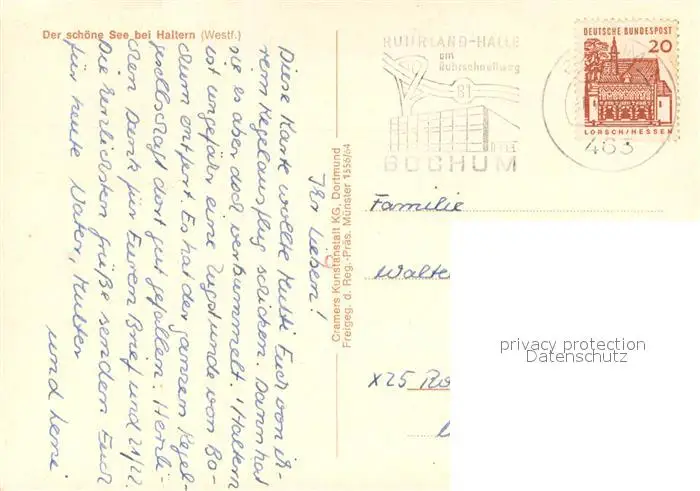 Der schöne See bei Haltern (Westf.)
Ihr Lieben!
Diese Karte wollte Mutti Euch von ih-
rem Kegelausflug schicken. Dann hat
sie es aber doch verbummelt. Haltern
ist ungefähr eine Zugstunde von Bo-
chum entfernt. Es hat der ganzen Kegel-
gesellschaft dort gut gefallen. Herzli-
chen Dank für Euren Brief und
Die herzlichsten Grüße senden Euch
für heute Vater, Mutter
und
Cramers Kunstanstalt KG, Dortmund
Freigeg. d. Reg.-Präs. Münster 1556/64
RUHRLAND-HALLE
am
Ruhrschnellweg
B1
BOCHUM
DEUTSCHE BUNDESPOST
20
LORSCH/HESSEN
463
Familie
Walte
X25 Ro
privacy protection
Datenschutz